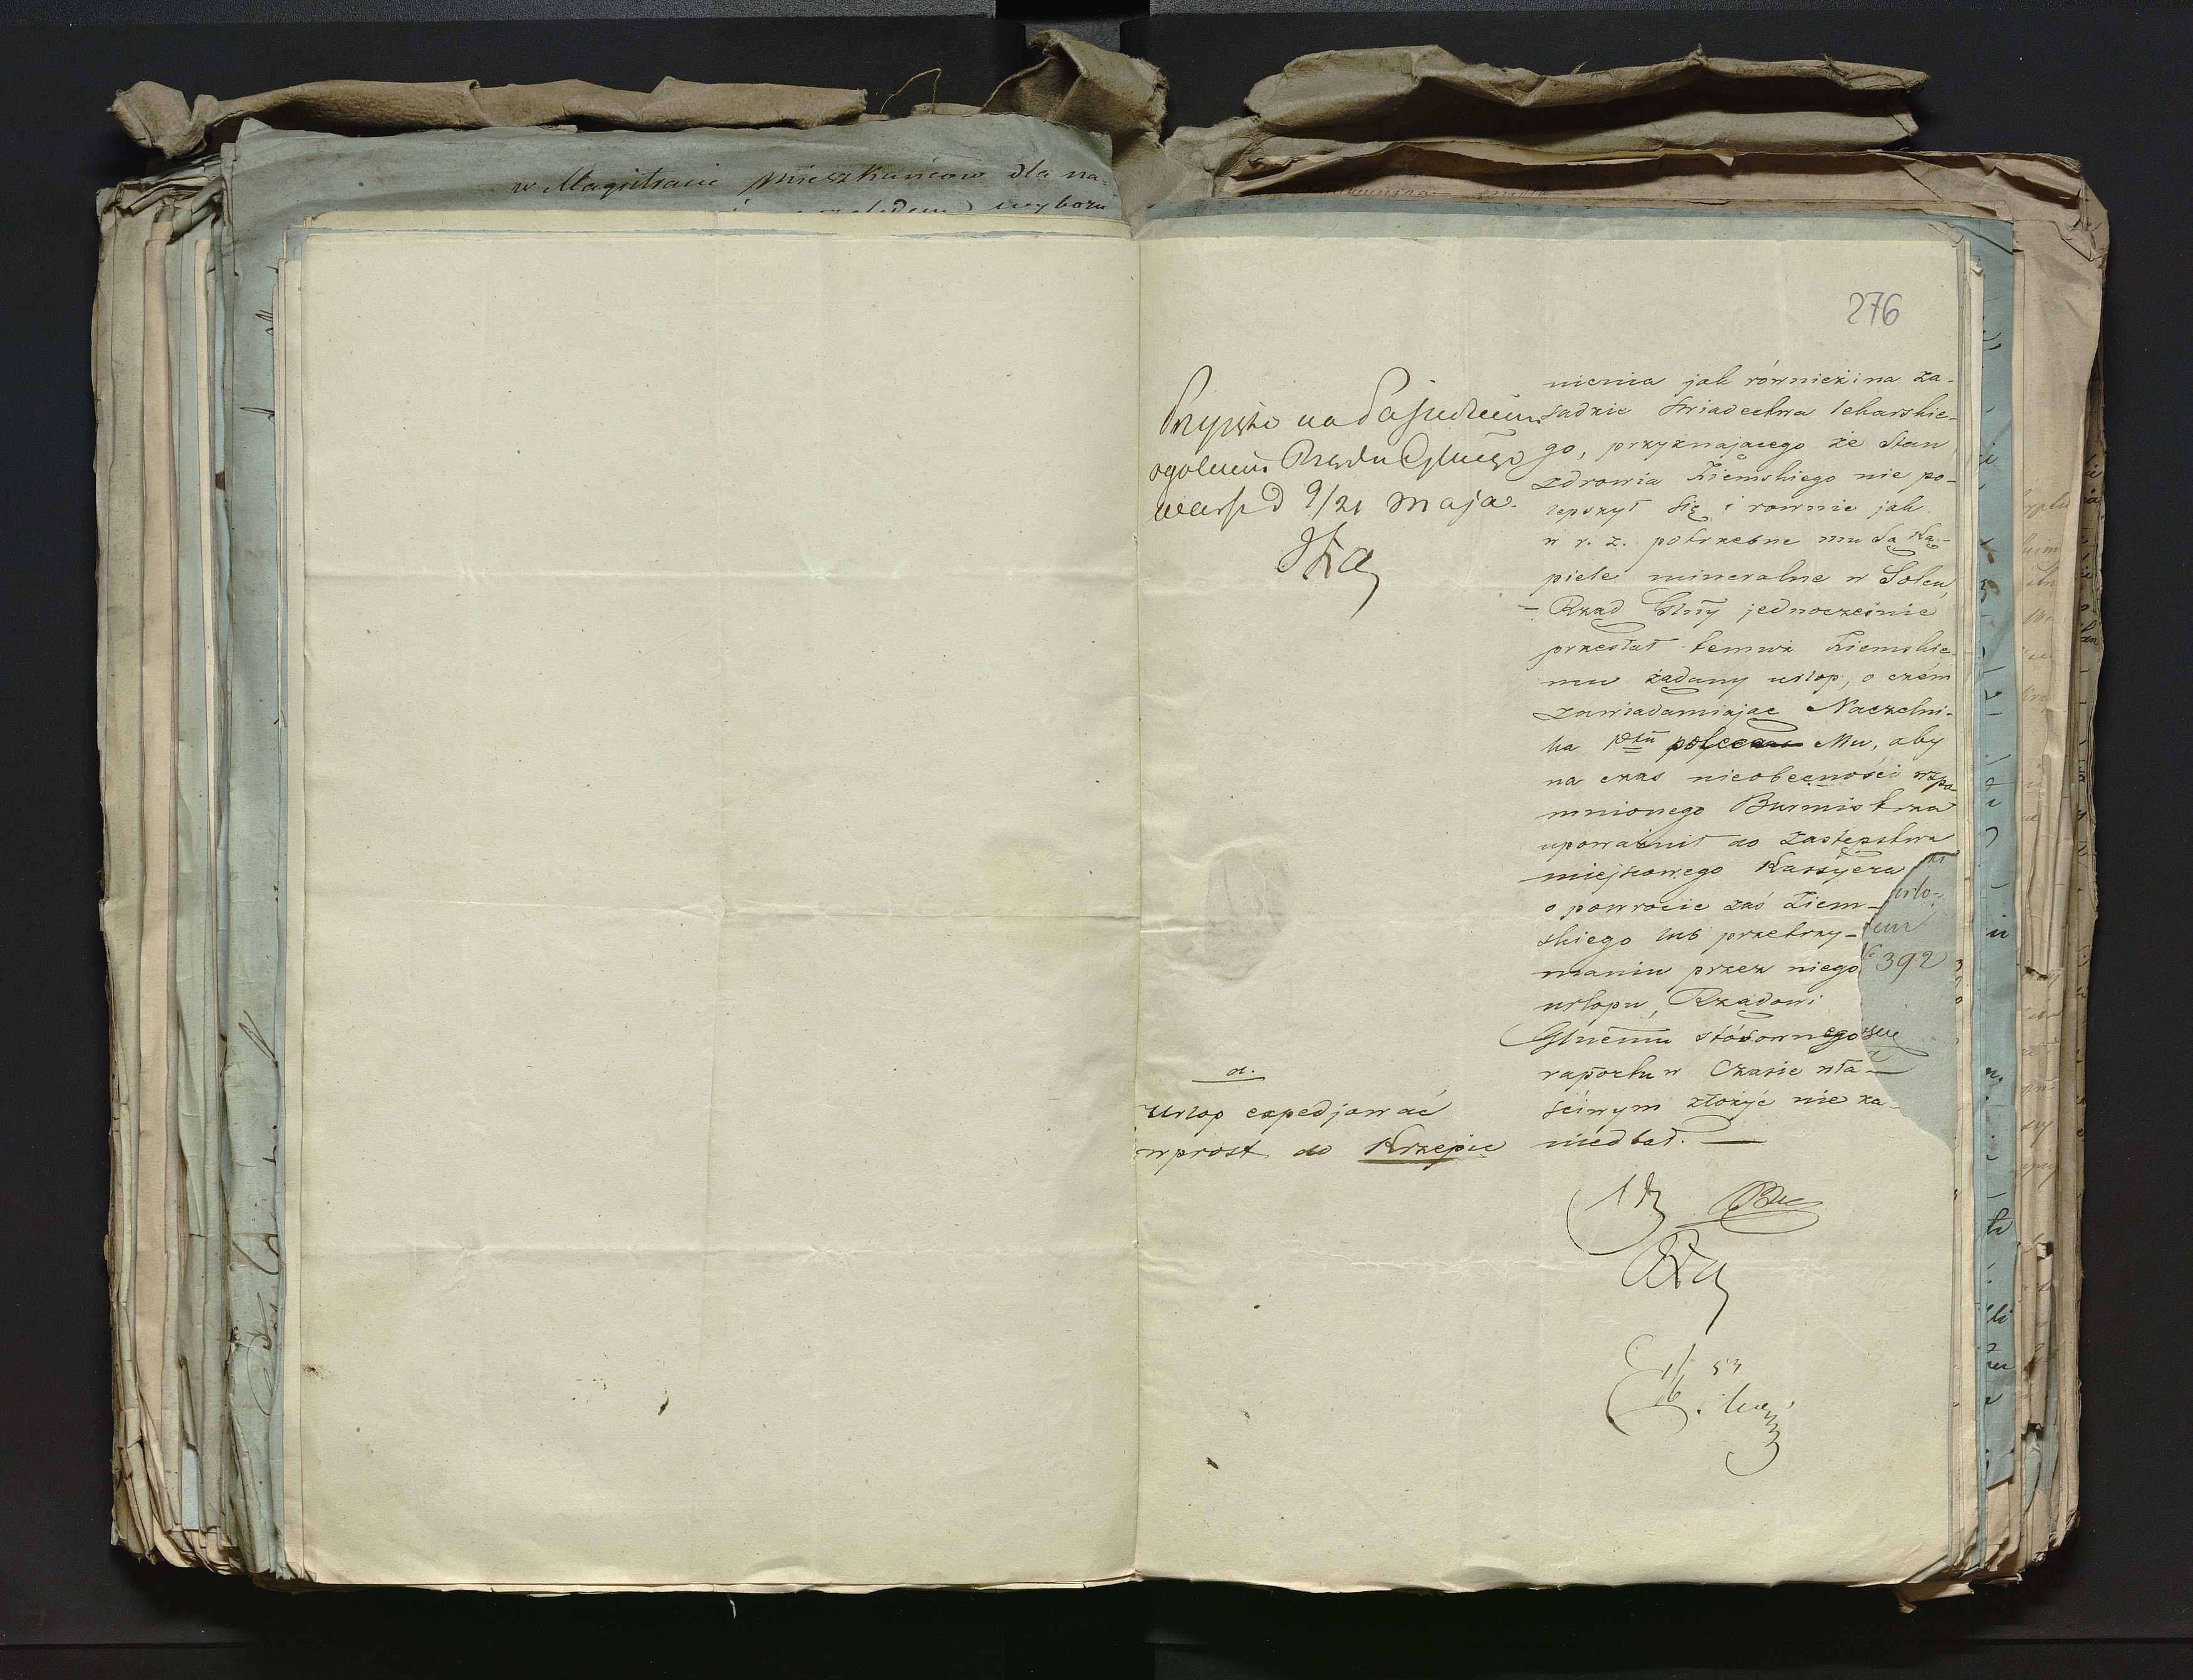 w Magistracie mieszkańców dla na-
wyboru
276
Przyjęto na Posiedzeniu
ogólnem Rządu Głnego
Warsz d 9/21 Maja.
nienia jak również i na za-
sadzie świadectwa lekarskie-
go, przyznającego że Stan
zdrowia Ziemskiego nie po-
lepszył się i rownie jak
w r. z. potrzebne mu są ką-
piele mineralne w Solcu,
– Rząd Głny jednocześnie
przesłał temuż Ziemskie-
mu żądany urlop, o czém
zawiadamiając Naczelni-
ka Ptu poleca Mu, aby
na czas nieobecności wspo-
mnionego Burmistrza
upoważnił do zastępstwa
miejscowego Kassyera
o powrocie zaś Ziem-
skiego lub przetrzy-
maniu przez niego
urlopu, Rządowi
Głnemu stósownego
raportu w Czasie wła-
ściwym złożyć nie za-
niedbał. —
urlo-
392
a.
Urlop expedjować
wprost do Krzepic